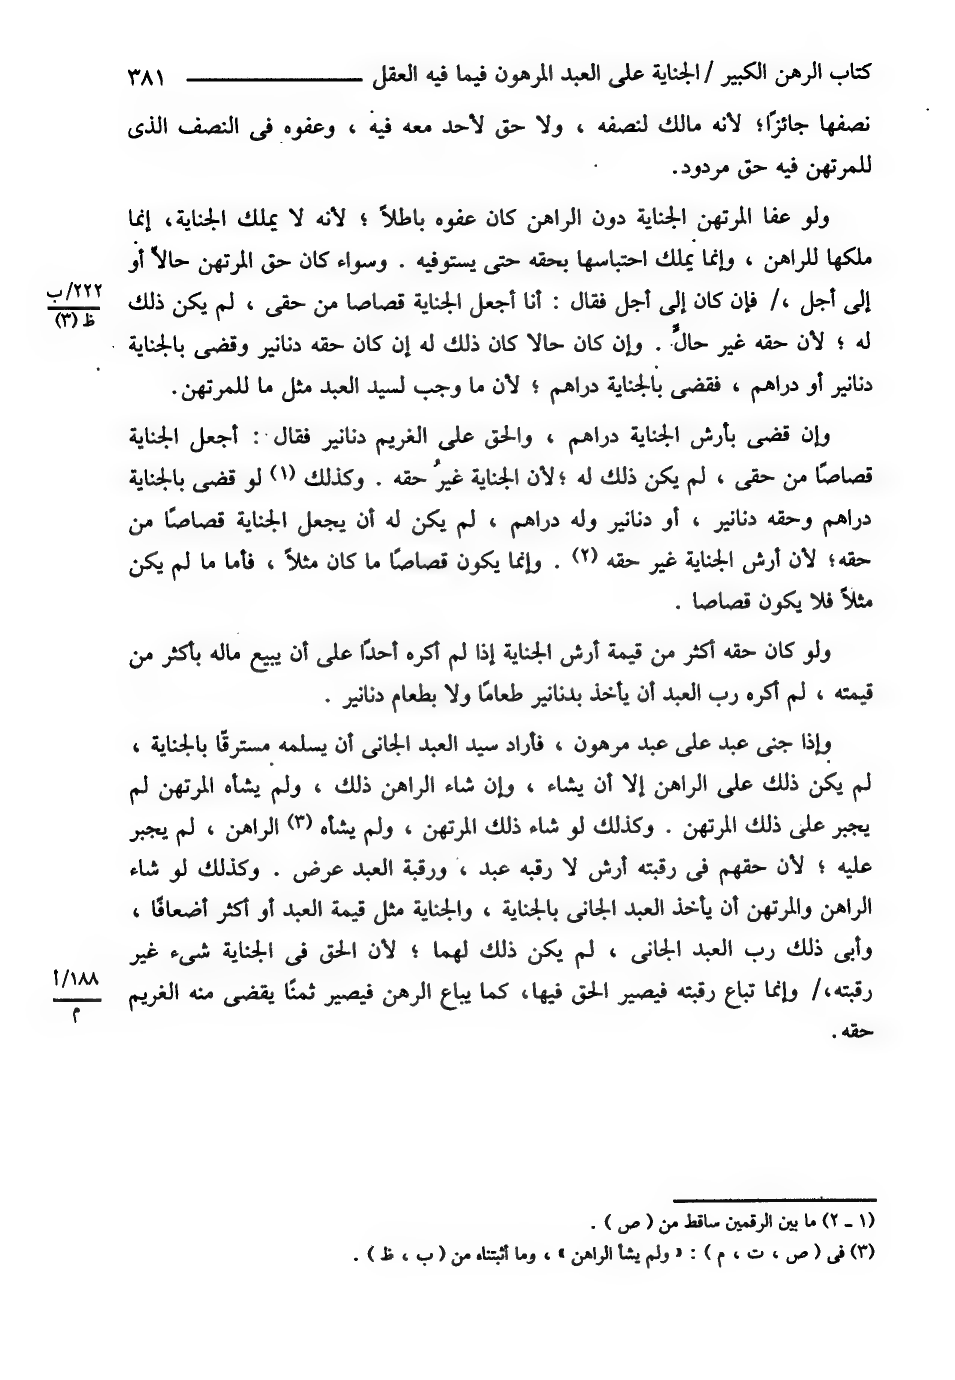 كتاب الرهن الكبير / الجناية على العبد المرهون فيما فيه العقل ــــــــــــــــ ٣٨١
نصفها جائزًا؛ لأنه مالك لنصفه ، ولا حق لأحد معه فيه ، وعفوه فى النصف الذى
للمرتهن فيه حق مردود.
ولو عفا المرتهن الجناية دون الراهن كان عفوه باطلاً ؛ لأنه لا يملك الجناية، إنما
ملكها للراهن ، وإنما يملك احتباسها بحقه حتى يستوفيه . وسواء كان حق المرتهن حالاً أو
إلى أجل ،/ فإن كان إلى أجل فقال : أنا أجعل الجناية قصاصا من حقى ، لم يكن ذلك
٢٢٢/ب
ظ (٣)
له ؛ لأن حقه غير حالٍّ . وإن كان حالا كان ذلك له إن كان حقه دنانير وقضى بالجناية
دنانير أو دراهم ، فقضى بالجناية دراهم ؛ لأن ما وجب لسيد العبد مثل ما للمرتهن.
وإن قضى بأرش الجناية دراهم ، والحق على الغريم دنانير فقال : أجعل الجناية
قصاصًا من حقى ، لم يكن ذلك له ؛لأن الجناية غيرُ حقه . وكذلك (١) لو قضى بالجناية
دراهم وحقه دنانير ، أو دنانير وله دراهم ، لم يكن له أن يجعل الجناية قصاصًا من
حقه؛ لأن أرش الجناية غير حقه (٢) . وإنما يكون قصاصًا ما كان مثلاً ، فأما ما لم يكن
مثلاً فلا يكون قصاصا .
ولو كان حقه أكثر من قيمة أرش الجناية إذا لم أكره أحدًا على أن يبيع ماله بأكثر من
قيمته ، لم أكره رب العبد أن يأخذ بدنانير طعامًا ولا بطعام دنانير .
وإذا جنى عبد على عبد مرهون ، فأراد سيد العبد الجانى أن يسلمه مسترقًا بالجناية ،
لم يكن ذلك على الراهن إلا أن يشاء ، وإن شاء الراهن ذلك ، ولم يشأه المرتهن لم
يجبر على ذلك المرتهن . وكذلك لو شاء ذلك المرتهن ، ولم يشأه (٣) الراهن ، لم يجبر
عليه ؛ لأن حقهم فى رقبته أرش لا رقبه عبد ، ورقبة العبد عرض . وكذلك لو شاء
الراهن والمرتهن أن يأخذ العبد الجانى بالجناية ، والجناية مثل قيمة العبد أو أكثر أضعافًا ،
وأبى ذلك رب العبد الجانى ، لم يكن ذلك لهما ؛ لأن الحق فى الجناية شىء غير
رقبته،/ وإنما تباع رقبته فيصير الحق فيها، كما يباع الرهن فيصير ثمنًا يقضى منه الغريم
١٨٨/أ
م
حقه.
(١ ـ ٢) ما بين الرقمين ساقط من ( ص ) .
(٣) فى ( ص ، ت ، م ) : « ولم يشأ الراهن » ، وما أثبتناه من ( ب ، ظ ) .